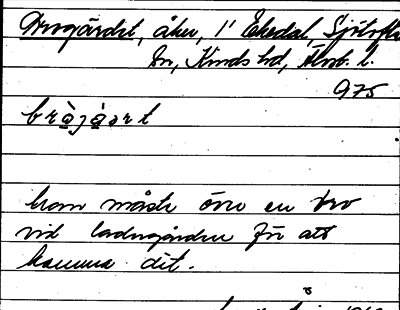 Brogärdet, åker, i Ekedal, Sjötofta
sn, Kinds hd, Älvsb. l.
975
brò̱jà̱ərt
man måste över en bro
vid ladugården för att
komma dit.